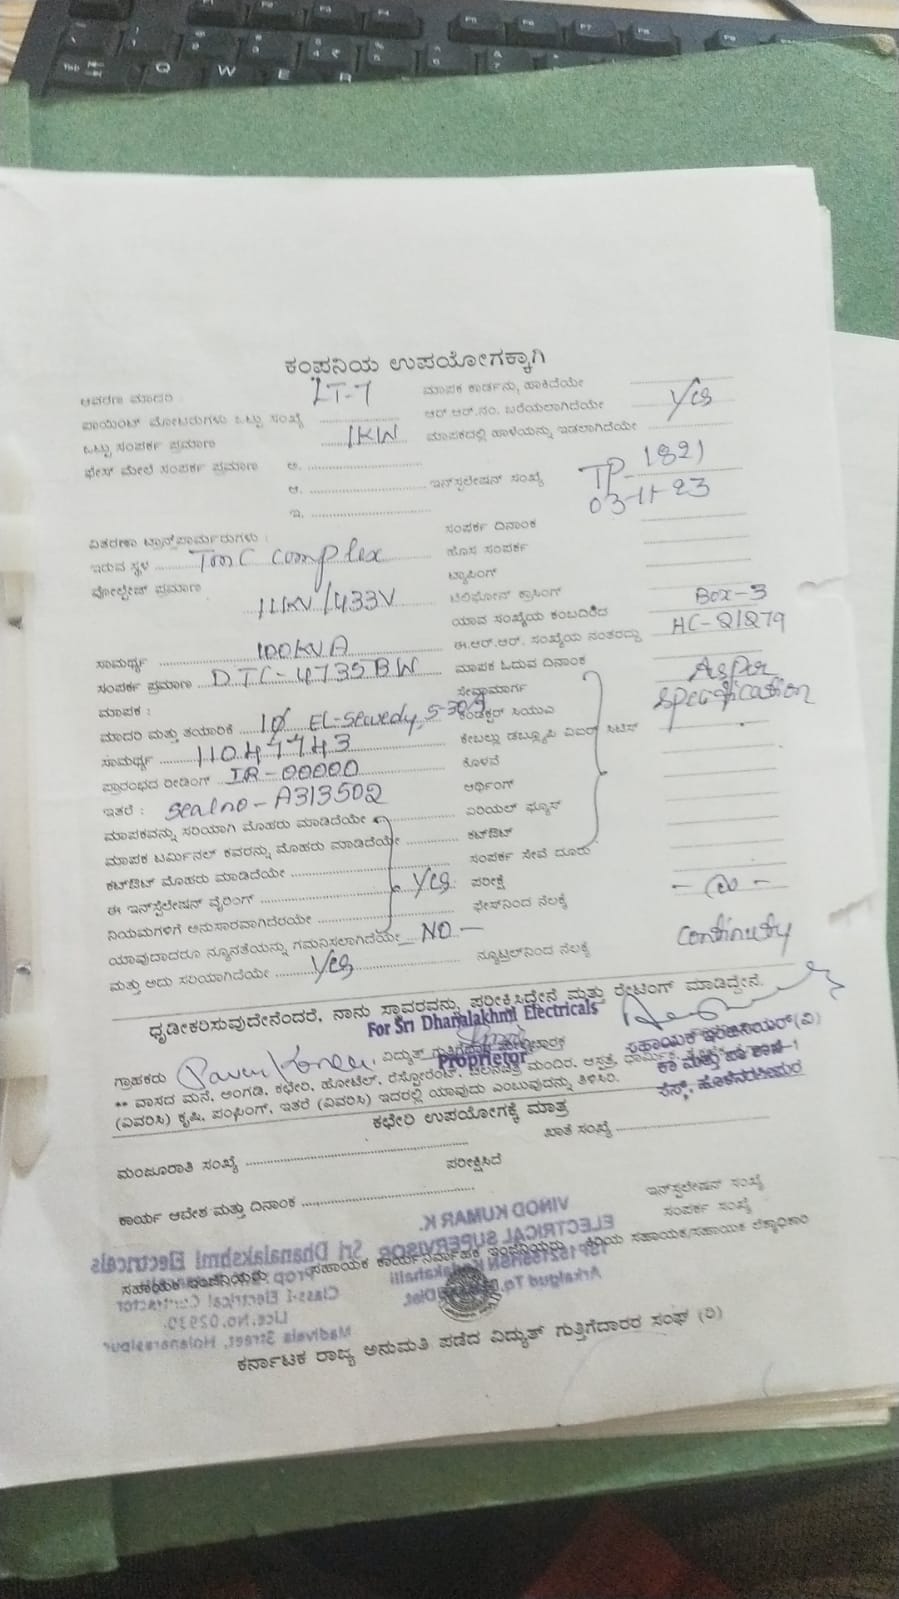 Q W E R
ಕಂಪನಿಯ ಉಪಯೋಗಕ್ಕಾಗಿ
ಆವರಣಾ ಮಾದರಿ : LT-7 ಮಾಪಕ ಕಾರ್ಡನ್ನು ಹಾಕಿದೆಯೇ
ಪಾಯಿಂಟ್ ಮೋಟರುಗಳು ಒಟ್ಟು ಸಂಖ್ಯೆ ಆರ್.ಆರ್.ನಂ. ಬರೆಯಲಾಗಿದೆಯೇ Yes
ಒಟ್ಟು ಸಂಪರ್ಕ ಪ್ರಮಾಣ 1KW ಮಾಪಕದಲ್ಲಿ ಹಾಳೆಯನ್ನು ಇಡಲಾಗಿದೆಯೇ
ಫೇಸ್ ಮೇಲೆ ಸಂಪರ್ಕ ಪ್ರಮಾಣ ಅ.
ಆ. ಇನ್‌ಸ್ಟಲೇಷನ್ ಸಂಖ್ಯೆ TP-1821
ಇ. 03-11-23
ವಿತರಣಾ ಟ್ರಾನ್ಸ್‌ಫಾರ್ಮರುಗಳು : ಸಂಪರ್ಕ ದಿನಾಂಕ
ಇರುವ ಸ್ಥಳ TMC complex ಹೊಸ ಸಂಪರ್ಕ
ವೋಲ್ಟೇಜ್ ಪ್ರಮಾಣ 11KV/433V ಟ್ಯಾಪಿಂಗ್
ಟೆಲಿಫೋನ್ ಕ್ರಾಸಿಂಗ್
ಯಾವ ಸಂಖ್ಯೆಯ ಕಂಬದಿಂದ Box-3
ಸಾಮರ್ಥ್ಯ 100KVA ಈ.ಆರ್.ಆರ್. ಸಂಖ್ಯೆಯ ನಂತರದ್ದು HC-21279
ಸಂಪರ್ಕ ಪ್ರಮಾಣ DTC-4735BW ಮಾಪಕ ಓದುವ ದಿನಾಂಕ
ಮಾಪಕ : ಸೇವಾಮಾರ್ಗ As per
ಮಾದರಿ ಮತ್ತು ತಯಾರಿಕೆ 1Ø EL-Sewedy, 5-30A ಕಂಡಕ್ಟರ್ ಸಿಯುಎ specification
ಸಾಮರ್ಥ್ಯ 11047743 ಕೇಬಲ್ಲು ಡಬ್ಲ್ಯೂಪಿ
ಪ್ರಾರಂಭದ ರೀಡಿಂಗ್ IR-00000 ಕೊಳವೆ
ಇತರೆ : Seal no - A313502 ಅರ್ಥಿಂಗ್
ಮಾಪಕವನ್ನು ಸರಿಯಾಗಿ ಮೊಹರು ಮಾಡಿದೆಯೇ ಏರಿಯಲ್ ಫ್ಯೂಸ್
ಮಾಪಕ ಟರ್ಮಿನಲ್ ಕವರನ್ನು ಮೊಹರು ಮಾಡಿದೆಯೇ ಕಟ್‌ಔಟ್
ಕಟ್‌ಔಟ್ ಮೊಹರು ಮಾಡಿದೆಯೇ ಸಂಪರ್ಕ ಸೇವೆ ದೂರು
ಈ ಇನ್‌ಸ್ಟಲೇಷನ್ ವೈರಿಂಗ್ Yes ಪರೀಕ್ಷೆ
ನಿಯಮಗಳಿಗೆ ಅನುಸಾರವಾಗಿದೆರಯೇ ಫೇಸ್‌ನಿಂದ ನೆಲಕ್ಕೆ
ಯಾವುದಾದರೂ ನ್ಯೂನತೆಯನ್ನು ಗಮನಿಸಲಾಗಿದೆಯೇ NO -
ಮತ್ತು ಅದು ಸರಿಯಾಗಿದೆಯೇ Yes ನ್ಯೂಟ್ರಲ್‌ನಿಂದ ನೆಲಕ್ಕೆ continuty
ಧೃಡೀಕರಿಸುವುದೇನೆಂದರೆ, ನಾನು ಸ್ಥಾವರವನ್ನು ಪರೀಕ್ಷಿಸಿದ್ದೇನೆ ಮತ್ತು ರೇಟಿಂಗ್ ಮಾಡಿದ್ದೇನೆ.
For Sri Dhanalakhmi Electricals
ಗ್ರಾಹಕರು ವಿದ್ಯುತ್ ಗುತ್ತಿಗೆದಾರ
Proprietor
ಸಹಾಯಕ ಇಂಜಿನಿಯರ್(ವಿ)
** ವಾಸದ ಮನೆ, ಅಂಗಡಿ, ಕಛೇರಿ, ಹೋಟೆಲ್, ರೆಸ್ಟೋರೆಂಟ್, ಚಲನಚಿತ್ರ ಮಂದಿರ, ಆಸ್ಪತ್ರೆ,
(ವಿವರಿಸಿ) ಕೃಷಿ, ಪಂಪಿಂಗ್, ಇತರೆ (ವಿವರಿಸಿ) ಇದರಲ್ಲಿ ಯಾವುದು ಎಂಬುವುದನ್ನು ತಿಳಿಸಿರಿ.
ಕಛೇರಿ ಉಪಯೋಗಕ್ಕೆ ಮಾತ್ರ
ಮಂಜೂರಾತಿ ಸಂಖ್ಯೆ ಖಾತೆ ಸಂಖ್ಯೆ
ಪರೀಕ್ಷಿಸಿದೆ
ಕಾರ್ಯ ಆದೇಶ ಮತ್ತು ದಿನಾಂಕ ಇನ್‌ಸ್ಟಲೇಷನ್ ಸಂಖ್ಯೆ
ಸಂಪರ್ಕ ಸಂಖ್ಯೆ
VINOD KUMAR K.
ELECTRICAL SUPERVISOR
Sri Dhanalakshmi Electricals
ಸಹಾಯಕ ಇಂಜಿನಿಯರು ಸಹಾಯಕ ಕಾರ್ಯನಿರ್ವಾಹಕ ಇಂಜಿನಿಯರು ಕಿರಿಯ ಸಹಾಯಕ/ಸಹಾಯಕ ಲೆಕ್ಕಾಧಿಕಾರಿ
Class-I Electrical Contractor
Lice.No.
Street, Holenarasipur
ಕರ್ನಾಟಕ ರಾಜ್ಯ ಅನುಮತಿ ಪಡೆದ ವಿದ್ಯುತ್ ಗುತ್ತಿಗೆದಾರರ ಸಂಘ (ರಿ)